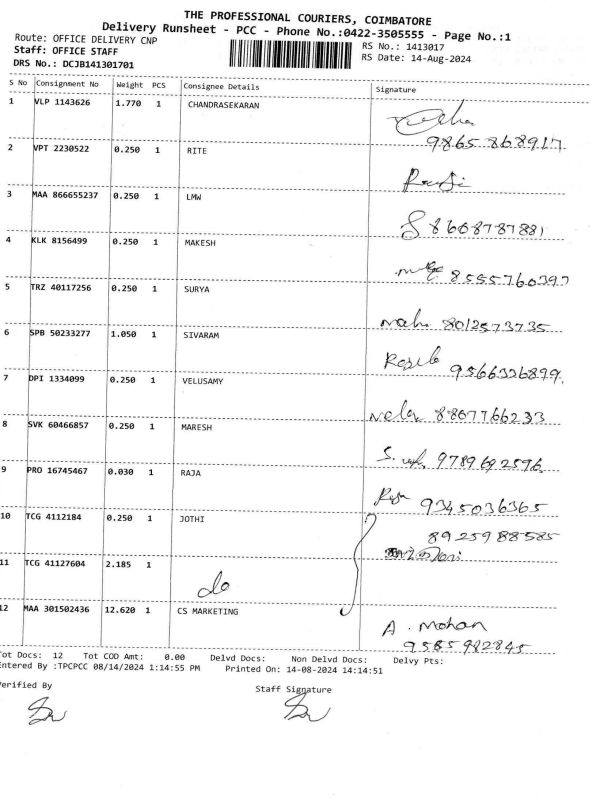 THE PROFESSIONAL COURIERS, COIMBATORE
Delivery Runsheet - PCC - Phone No.:0422-3505555 - Page No.:1
Route: OFFICE DELIVERY CNP
RS No.: 1413017
Staff: OFFICE STAFF
RS Date: 14-Aug-2024
DRS No.: DCJB141301701
S No Consignment No Weight PCS Consignee Details Signature
1 VLP 1143626 1.770 1 CHANDRASEKARAN
9865 868917
2 VPT 2230522 0.250 1 RITE
3 MAA 866655237 0.250 1 LMW
8608787881
4 KLK 8156499 0.250 1 MAKESH
8555760397
5 TRZ 40117256 0.250 1 SURYA
8012573735
6 SPB 50233277 1.050 1 SIVARAM
9566326899.
7 DPI 1334099 0.250 1 VELUSAMY
8807766233
8 SVK 60466857 0.250 1 MARESH
9789692596
9 PRO 16745467 0.030 1 RAJA
9345036365
10 TCG 4112184 0.250 1 JOTHI
8925988585
11 TCG 41127604 2.185 1
do
12 MAA 301502436 12.620 1 CS MARKETING
A. Mohan
9585982845
Tot Docs: 12 Tot COD Amt: 0.00 Delvd Docs: Non Delvd Docs: Delvy Pts:
Entered By :TPCPCC 08/14/2024 1:14:55 PM Printed On: 14-08-2024 14:14:51
Verified By Staff Signature